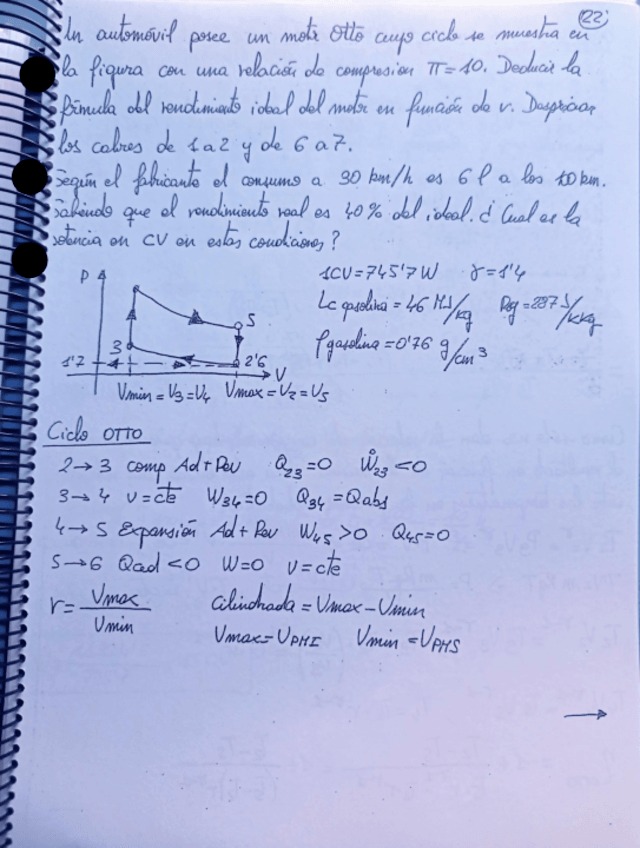 22
Un automóvil posee un motor Otto cuyo ciclo se muestra en
la figura con una relación de compresion π=10. Deducir la
fórmula del rendimiento ideal del motor en función de v. Despreciar
los calores de 1 a 2 y de 6 a 7.
Según el fabricante el consumo a 30 km/h es 6 l a los 100 km.
Sabiendo que el rendimiento real es 40% del ideal. ¿Cual es la
potencia en CV en estas condiciones?
1CV=745'7W γ=1'4
Lc gasolina = 46 MJ/kg Rg=287 J/kkg
ρgasolina=0'76 g/cm³
P
5
3
1'7
2'6
V
Vmin=V3=V4 Vmax=V2=V5
Ciclo OTTO
2→3 comp Ad+Rev Q23=0 W23<0
3→4 v=cte W34=0 Q34=Qabs
4→5 Expansión Ad+Rev W45>0 Q45=0
5→6 Qad<0 W=0 v=cte
r=Vmax/Vmin Cilindrada=Vmax-Vmin
Vmax=VPMI Vmin=VPMS
→